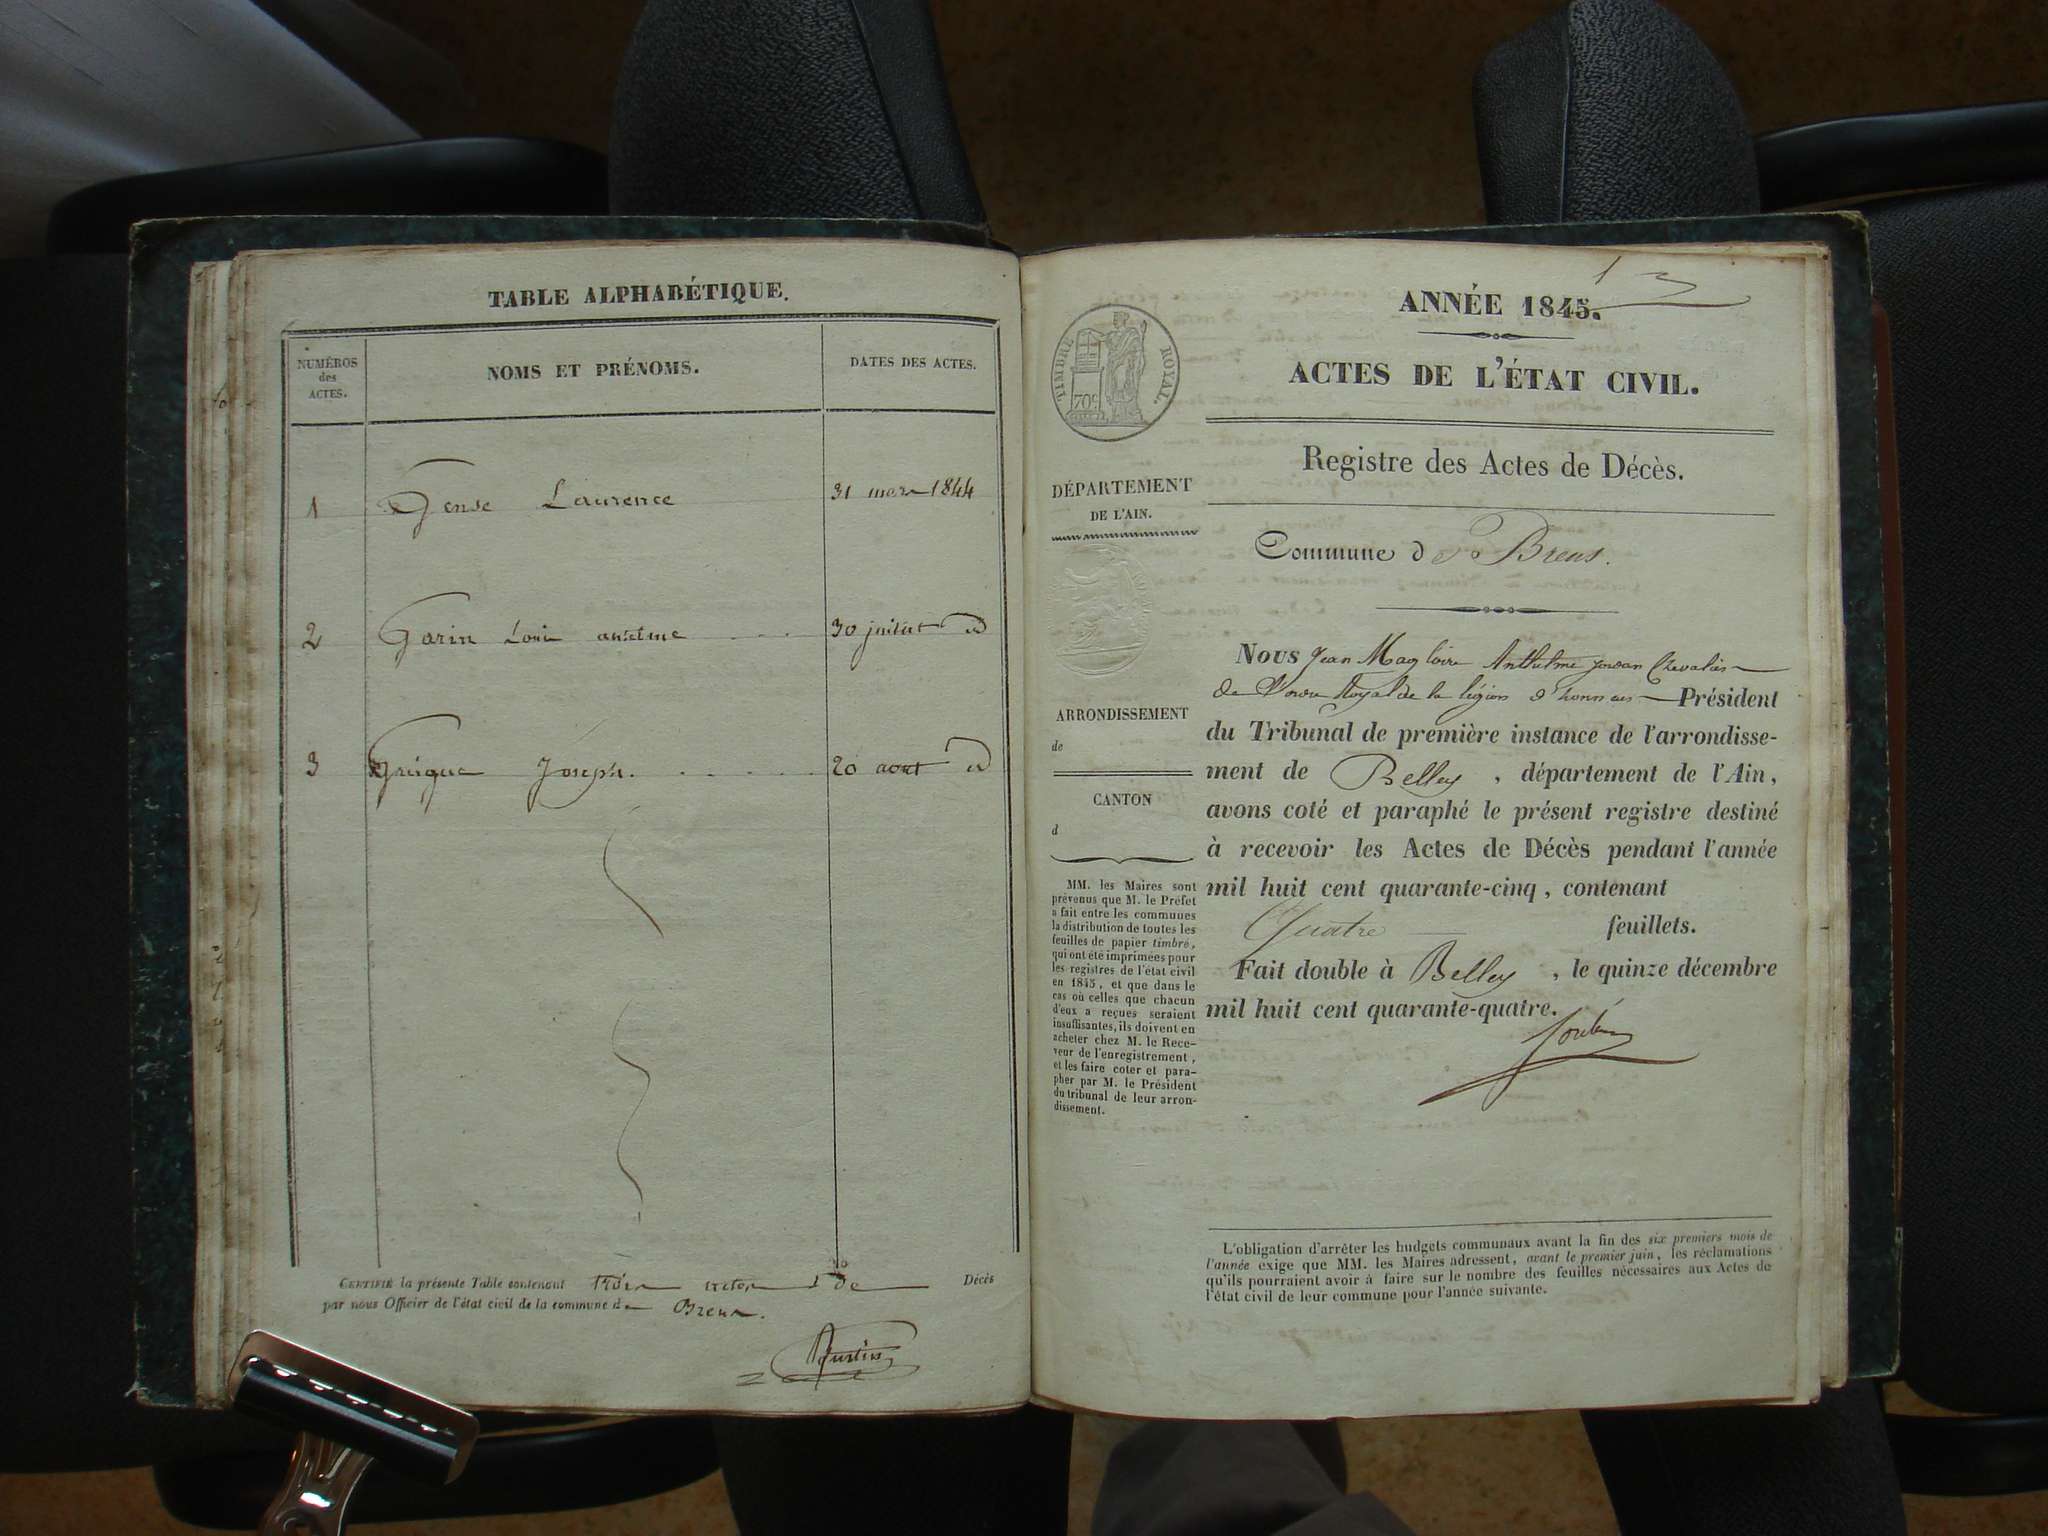 TABLE ALPHABÉTIQUE.
NUMÉROS
des
ACTES.
NOMS ET PRÉNOMS.
DATES DES ACTES.
1 Gense Laurence 31 mars 1844
2 Garin Louis anselme 30 juillet d
3 Joseph. 20 aout d
CERTIFIÉ la présente Table contenant trois actes de Décès
par nous Officier de l'état civil de la commune de Brens.
ANNÉE 1845.
1
TIMBRE ROYAL.
70c
ACTES DE L'ÉTAT CIVIL.
Registre des Actes de Décès.
DÉPARTEMENT
DE L'AIN.
Commune de Brens.
ARRONDISSEMENT
de
CANTON
d
MM. les Maires sont
prévenus que M. le Préfet
a fait entre les communes
la distribution de toutes les
feuilles de papier timbré,
qui ont été imprimées pour
les registres de l'état civil
en 1845, et que dans le
cas où celles que chacun
d'eux a reçues seraient
insuffisantes, ils doivent en
acheter chez M. le Rece-
veur de l'enregistrement,
et les faire coter et para-
pher par M. le Président
du tribunal de leur arron-
dissement.
Nous Jean Magloire Anthelme Jordan Chevalier
de l'ordre Royal de la légion d'honneur Président
du Tribunal de première instance de l'arrondisse-
ment de Belley, département de l'Ain,
avons coté et paraphé le présent registre destiné
à recevoir les Actes de Décès pendant l'année
mil huit cent quarante-cinq, contenant
Quatre feuillets.
Fait double à Belley, le quinze décembre
mil huit cent quarante-quatre.
L'obligation d'arrêter les budgets communaux avant la fin des six premiers mois de
l'année exige que MM. les Maires adressent, avant le premier juin, les réclamations
qu'ils pourraient avoir à faire sur le nombre des feuilles nécessaires aux Actes de
l'état civil de leur commune pour l'année suivante.